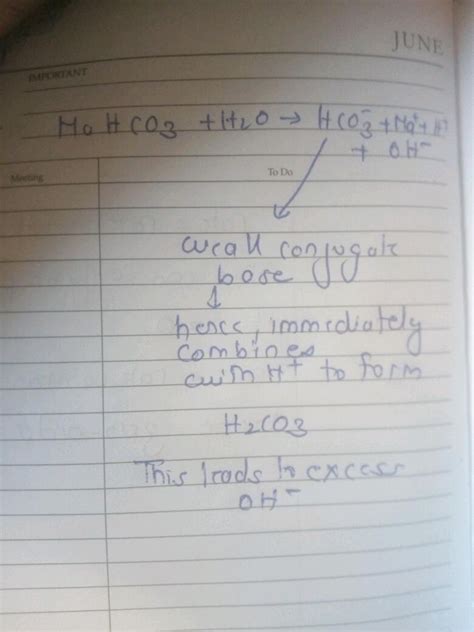 JUNE
IMPORTANT
NaHCO3 + H2O → HCO3⁻ + Na⁺ + H⁺
+ OH⁻
Meeting
To Do
weak conjugate
base
hence, immediately
combines
with H⁺ to form
H2CO3
This leads to excess
OH⁻